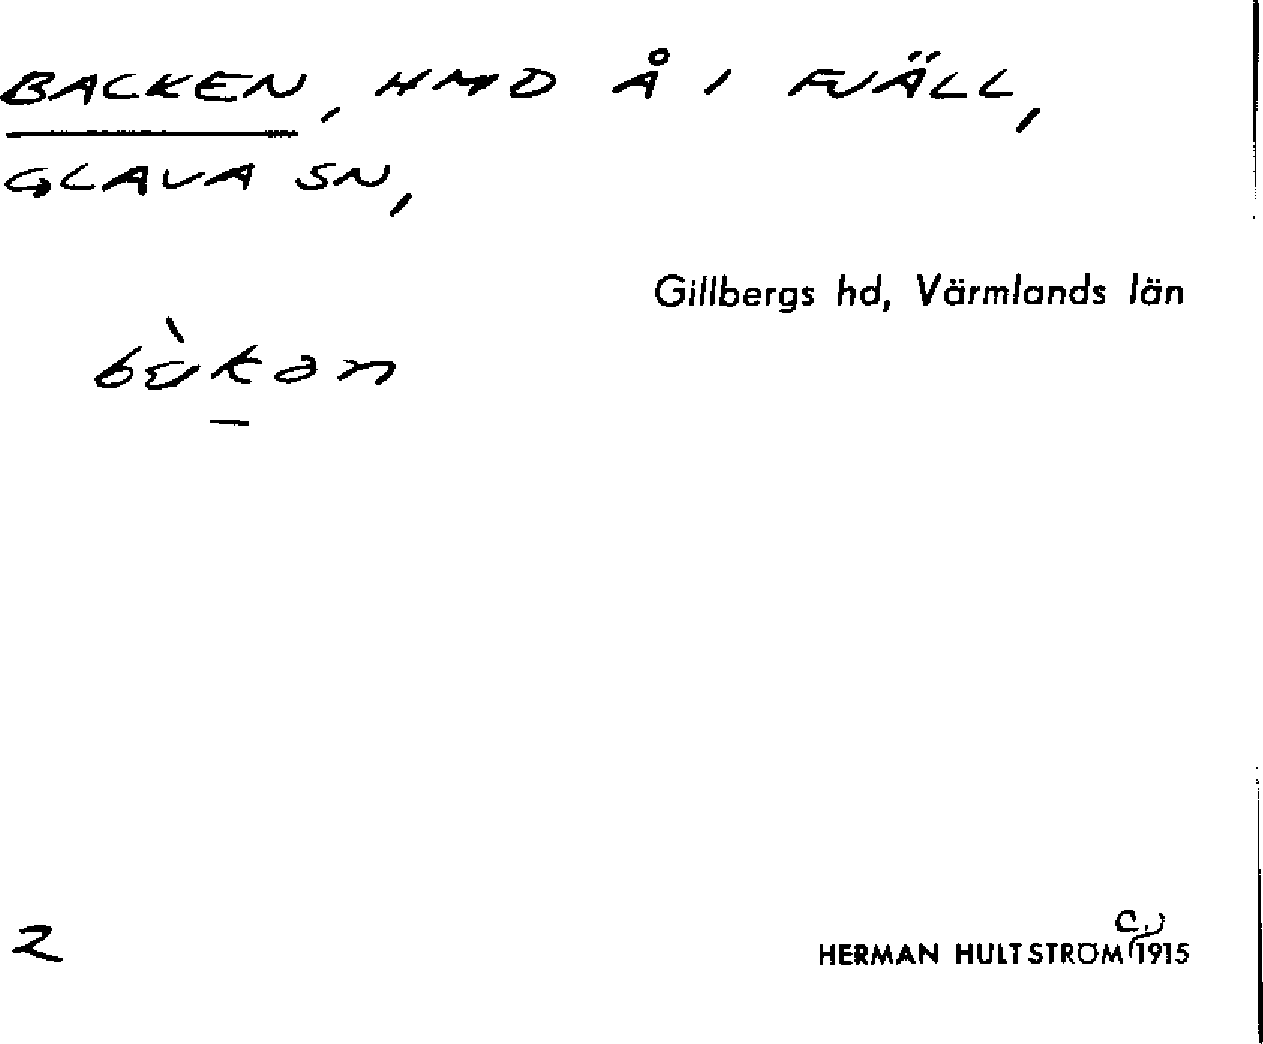 BACKEN, HMD Å I FJÄLL,
GLAVA SN,
Gillbergs hd, Värmlands län
2
HERMAN HULTSTRÖM (C.) 1915